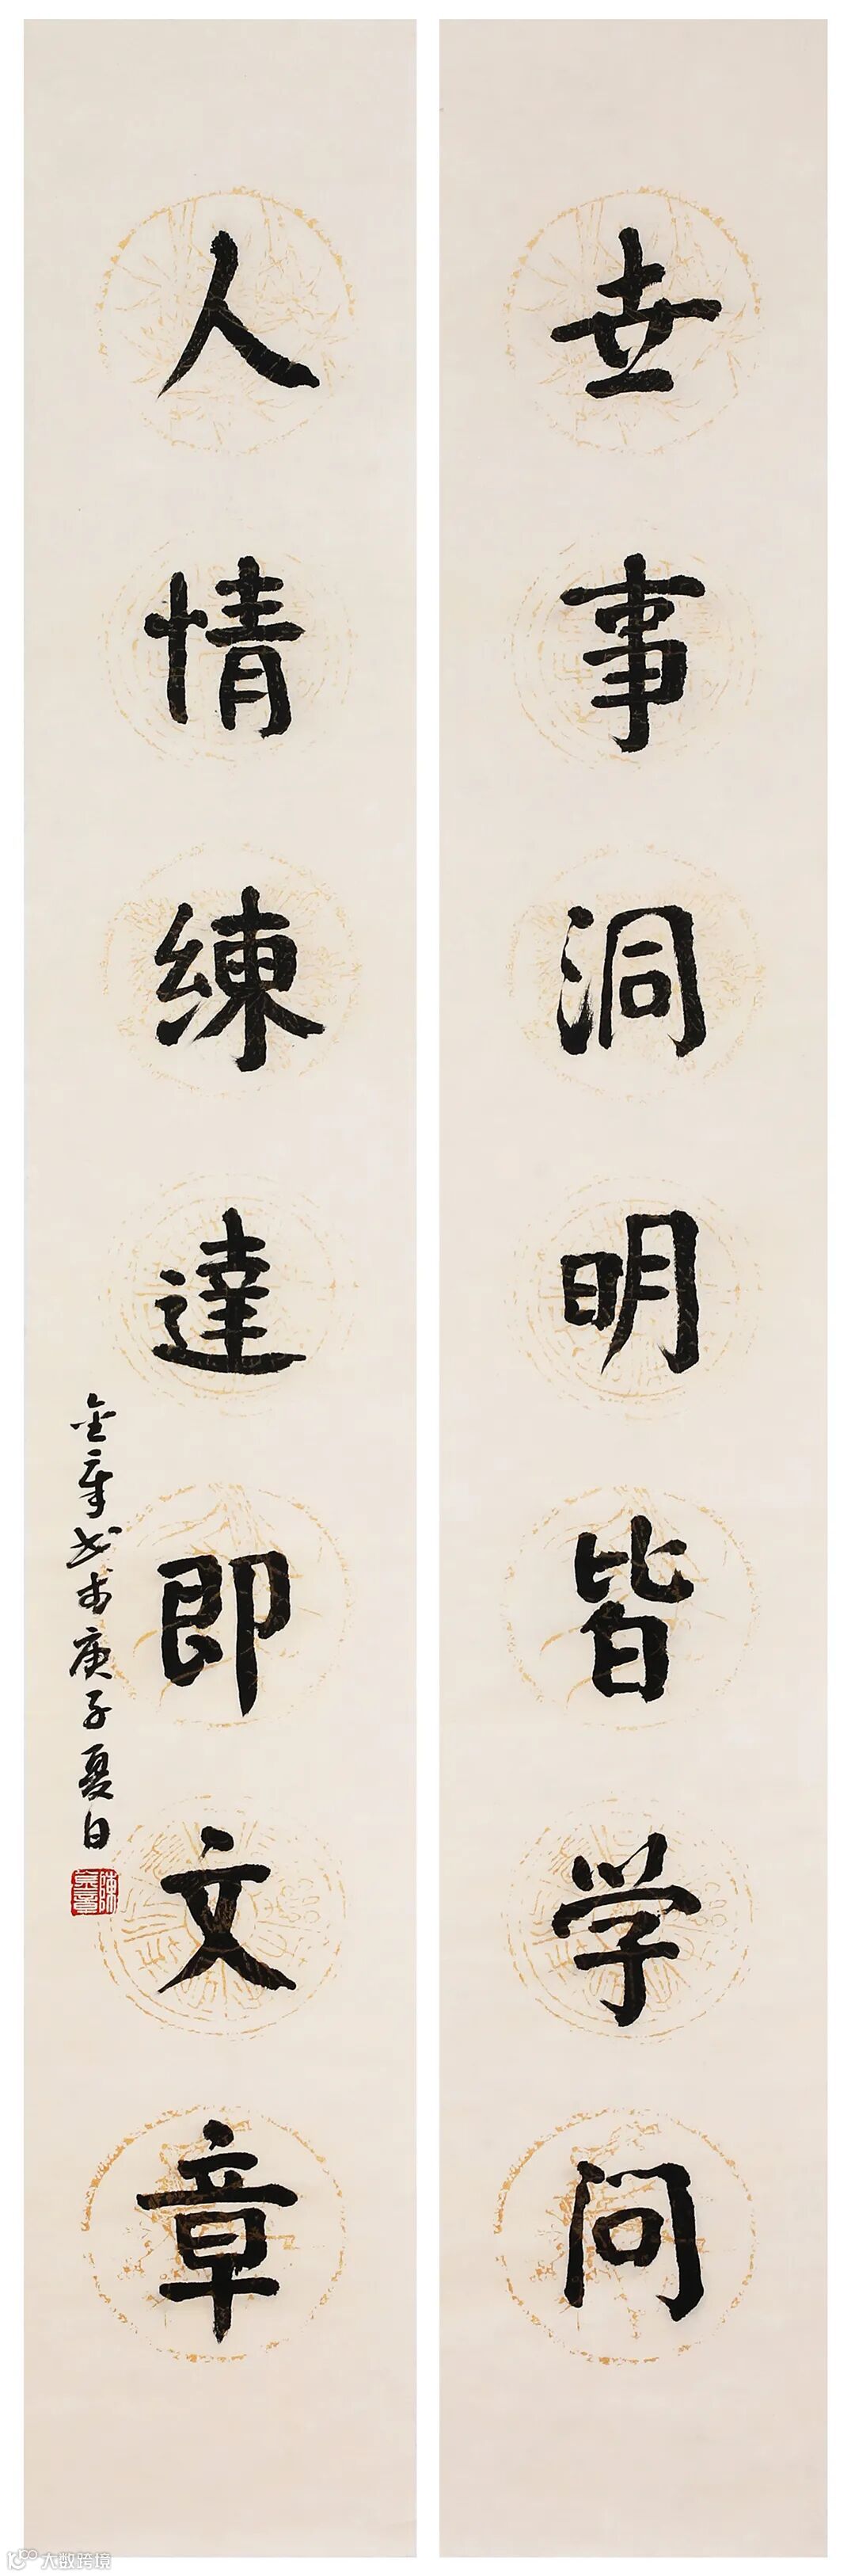 世事洞明皆学问
人情練達即文章
金章书庚子夏日
陳金章
大数跨境